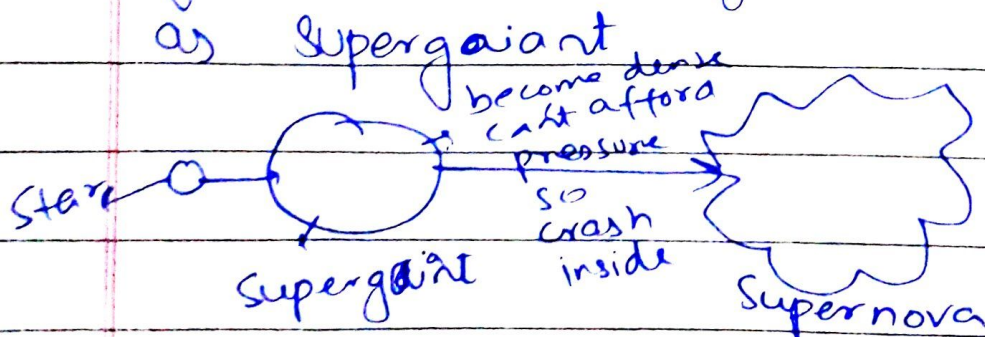 as Supergaiant
become dense
can't afford
pressure
so
crash
inside
Star
Supergaint
Supernova